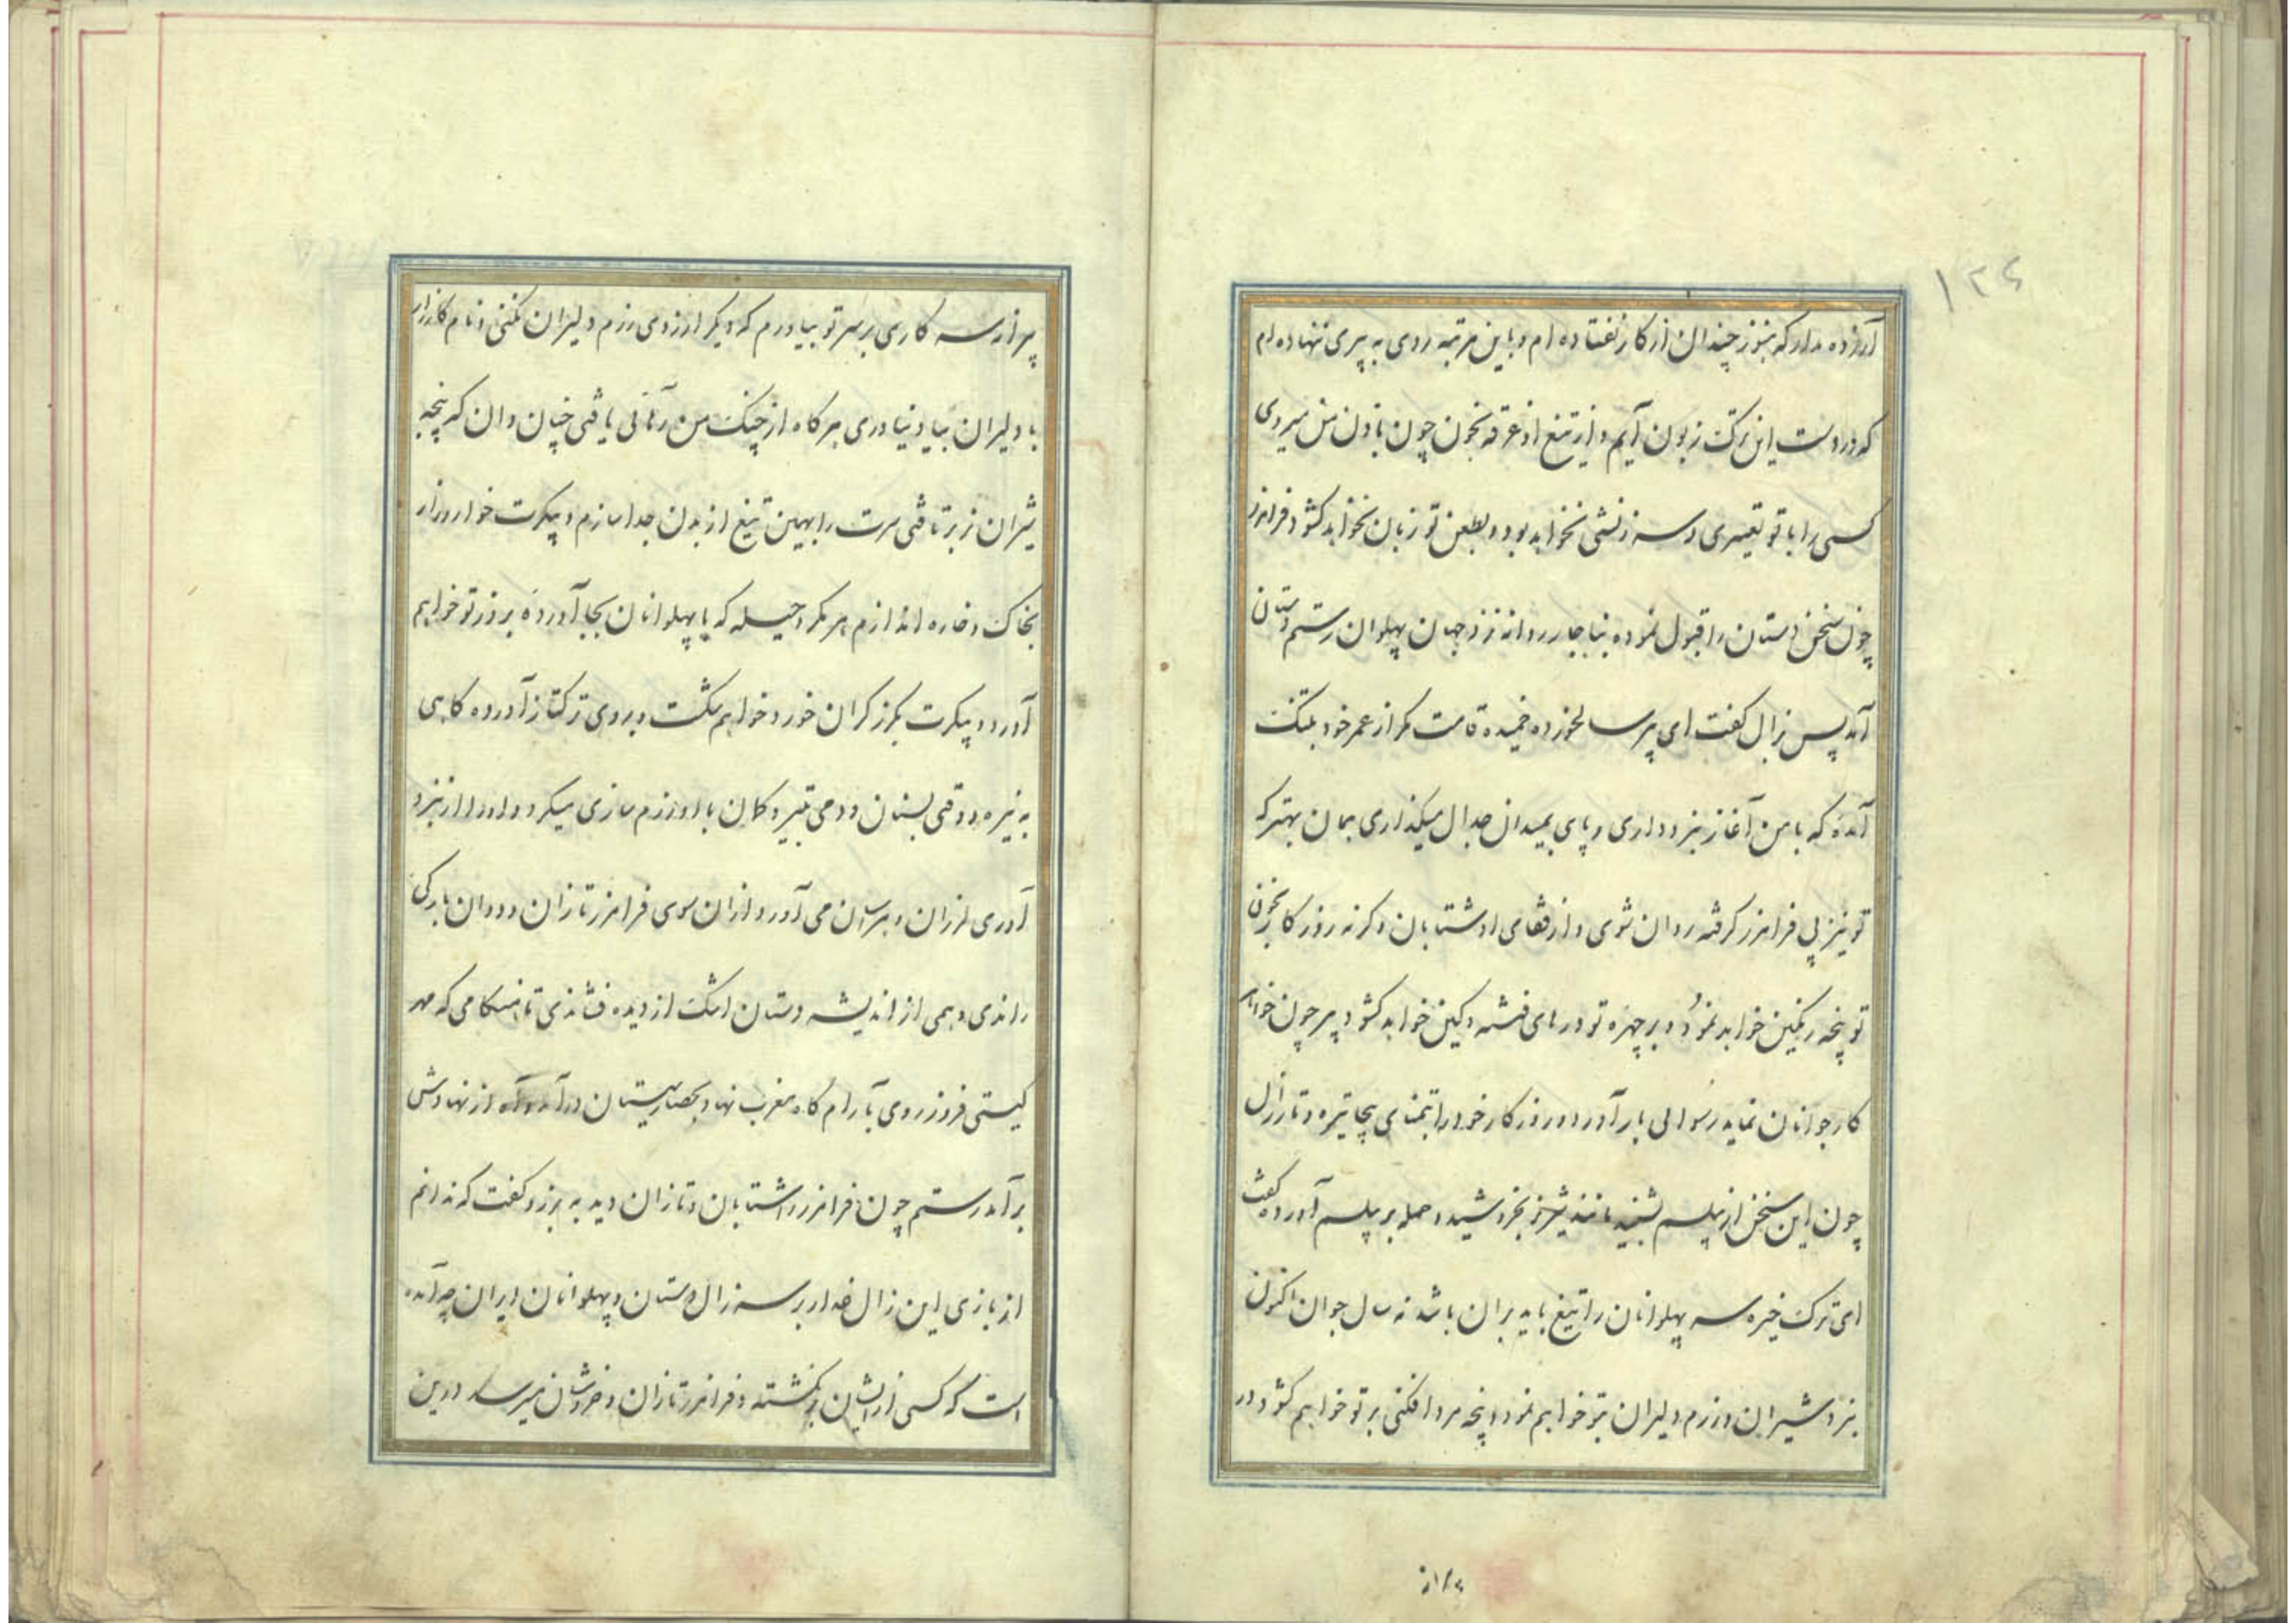 ۱۲۶
آزرده مدار که هنوز چندان از کار نفتاده ام و باین مرتبه روی به پیری ننهاده ام
که در دست این ترک زبون آیم و از تیغ او غرقه بخون چون تا ون من میروی
کسی را با تو تعییری و سرزنشی نخواهد بود و بطعن تو زبان نخواهد کشود فرامرز
چون سخن دستان را قبول نموده بناچار روانه نزد جهان پهلوان رستم دستان
آمد پس بزال کفت ای پیر سالخورده خمیده قامت مکر از عمر خود بتنک
آمدهٔ که با من آغاز نبرد داری و پای بمیدان جدال میکذاری همان بهتر که
تو نیز پی فرامرز کرفته روان شوی و از قفای او شتابان و کرنه روزکار بخون
تو پنجه رنکین خواهد نمود و بر چهره تو درهای فتنه و کین خواهد کشود پیر چون خواهد
کار جوانان نماید رسوائی بار آورد و روزکار خود را بتمنای بیجا تیره و تار زال
چون این سخن از پیلسم بشنید مانند شیر نر بخروشید و حمله بر پیلسم آورده کفت
ای ترک خیره سر پهلوانان را تیغ باید بران باشد نه سال جوان اکنون
نبرد شیران و رزم دلیران بتو خواهم نمود و پنجه مرد افکنی بر تو خواهم کشود و در
پیرانه سر کاری بر سر تو بیاورم که دیکر ارزوی رزم دلیران نکنی و نام کارزار
با دلیران بیاد نیاوری هر کاه از چنک من رهائی یافتی چنان دان که پنجه
شیران نر برتافتی سرت را بهمین تیغ از بدن جدا سازم و پیکرت خوار و زار
بخاک و خاره اندازم هر مکر و حیله که با پهلوانان بجا آوردهٔ بروز تو خواهم
آورد و پیکرت بکرز کران خورد خواهم شکست و بروی ترکتاز آورده کاهی
به نیزه و وقتی بسنان و دمی بتیر و کمان با او رزم سازی میکرد و او را از نبرد
آوری لرزان و هرسان می آورد و ازان سوی فرامرز تازان و دوان بارکی
راندی و همی از اندیشه دستان اشک از دیده فشاندی تا هنکامی که مهر
کیتی فروز روی بآرام کاه مغرب نهاد بحصار سیستان درآمد از نهادش
برآمد رستم چون فرامرز را شتابان و تازان دید به برزو کفت که ندانم
از بازی این زال غدار بر سر زال دستان و پهلوانان ایران چه آمده
است که کسی از ایشان برنکشته و فرامرز تازان و خروشان میرسد درین